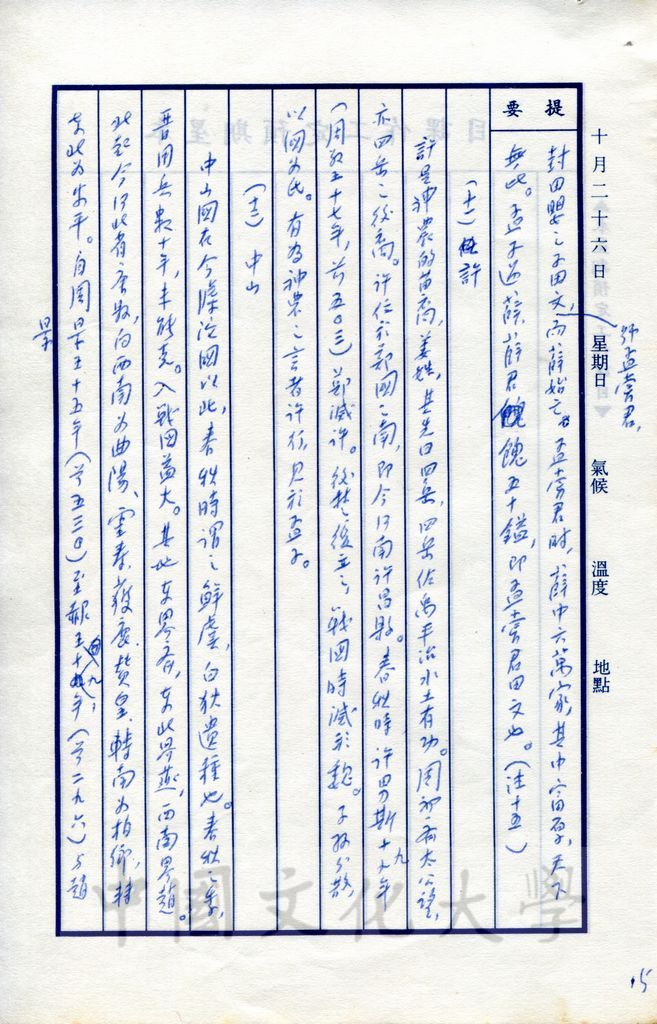 十月二十六日 星期日 氣候 溫度 地點
提要
號孟嘗君,
封田嬰之子田文,而薛始亡。孟嘗君時,薛中六萬家,其中富厚,天下
無此。孟子過薛,薛君餽五十鎰,即孟嘗君田文也。(注十五)
(十一)許
許是神農的苗裔,姜姓,其先曰四岳,四岳佐禹平治水土有功。周初有太公望,
亦四岳之後裔。許位於鄭國之南,即今河南許昌縣。春秋時許男斯十九年
(周敬王十七年,前五〇三)鄭滅許。後楚復立之,戰國時滅於魏。子孫分散,
以國為氏。有為神農之言者許行,見於孟子。
(十二)中山
中山國在今滹沱國以北,春秋時謂之鮮虞,白狄遺種也。春秋之季,
晉用兵數十年,未能克。入戰國益大。其地東界齊,東北界燕,西南界趙。
北起今河北省唐縣,向西南為曲陽、靈壽、獲鹿、贊皇,轉南為柏鄉,轉
東北為安平。自周景王十五年(前五三〇)至赧王十九年(前二九六)為趙
景
15
中國文化大學